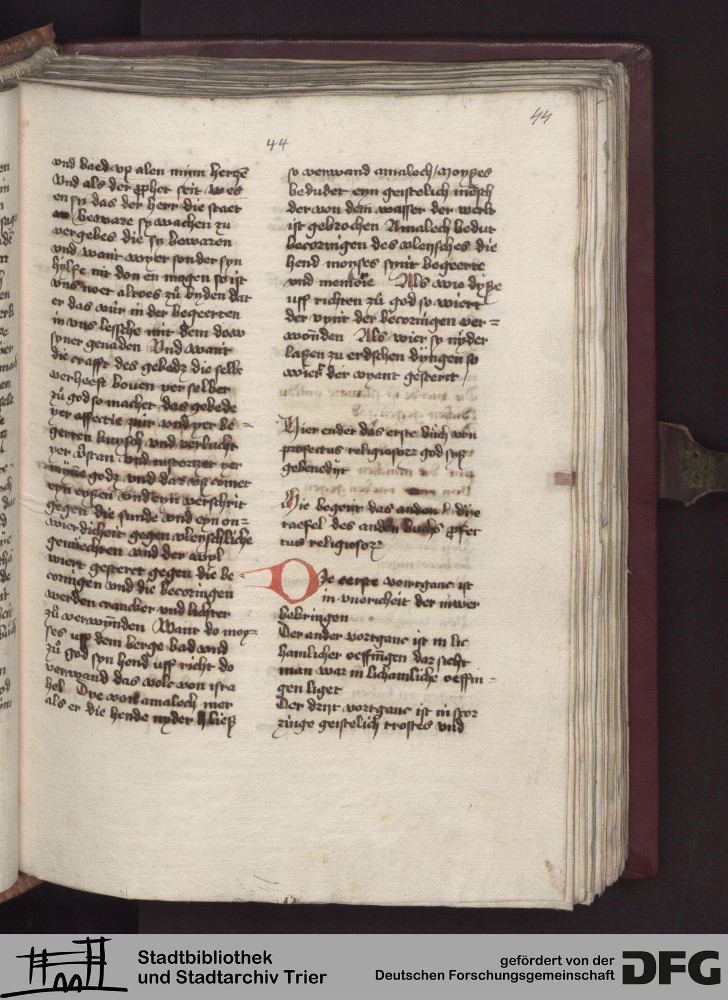 44
44
vnd baed vp alen mynn herꜩē
Vnd als der ꝓphet seit w es
en sy das der herr die staet
beware sy wachen zu
vergebes die sy bewaren
vnd want wyer sonder syn
hylfe nit don en mogen so ist
vns noet altoes zů byden dat
er das vůr in der begeerten
in vns lessche mit dem dow
syner genaden Vnd want
die crafft des gebedz die selbe
verheeft bouen yer selber
zů god so machet das gebede
yer affectie puir vnd yer be
gerten kuysch vnd verlucht
yer vnd
godz vnd dar vß comet
eyn eyßen vnd eyn verschrit
gegen die sunde vnd eyn on=
wierdicheit gegen vleyschliche
genuechten vnd der wyl
wiert gesteret gegen die be
coringen vnd die becoringen
werden crancker vnd lichter
zů verwynden Want do moy=
ses uff dem berge bad vnd
zů god syn hend uff richt do
verwand das volc von isra
hel Dye von amaloch mer
als er die hende nyder ließ
so verwand amaloch/ moyßes
bedudet eyn geistelich mēsch
der von dem wasser der werlt
ist gebrochen Amalech bedut
becoringen des vleysches die
hend moyses synt begeerte
vnd Als wir dyße
uff richten zů god so wiert
der vynt der becoringen ver=
wonden Als wier sy nyder
laßen zu erdschen dyngen so
wiert der vyant gesterct /
Hier endet das erste bůch von
profectus religiosorum god syß
gebenedijt
Hie begynt das ander die
taefel des anden buchs ꝓfec
tus religiosorum
Die eerste vortganc ist
in vuoricheit der niwer
bekeringen
Der ander vortganc ist in lic
hamlicher oeffingen dar sicht
man war in lichamliche oeffin=
gen liget
Der drijt vortganc ist in stor
zunge geistelich trostes vnd
Stadtbibliothek
und Stadtarchiv Trier
gefördert von der
Deutschen Forschungsgemeinschaft
DFG